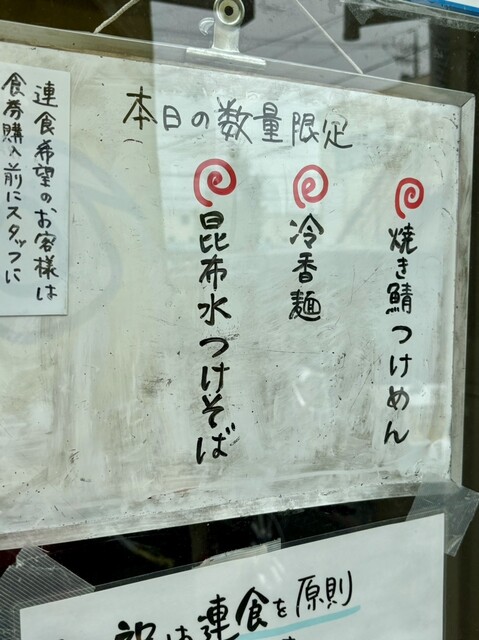 本日の数量限定
焼き鯖つけめん
冷香麺
昆布水つけそば
連食希望のお客様は
食券購入前にスタッフに
は連食を原則